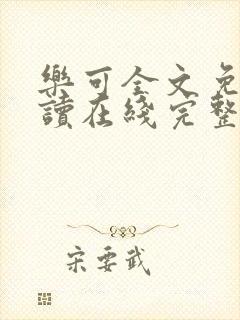 樂可全文免
讀在綫完整
宋要武